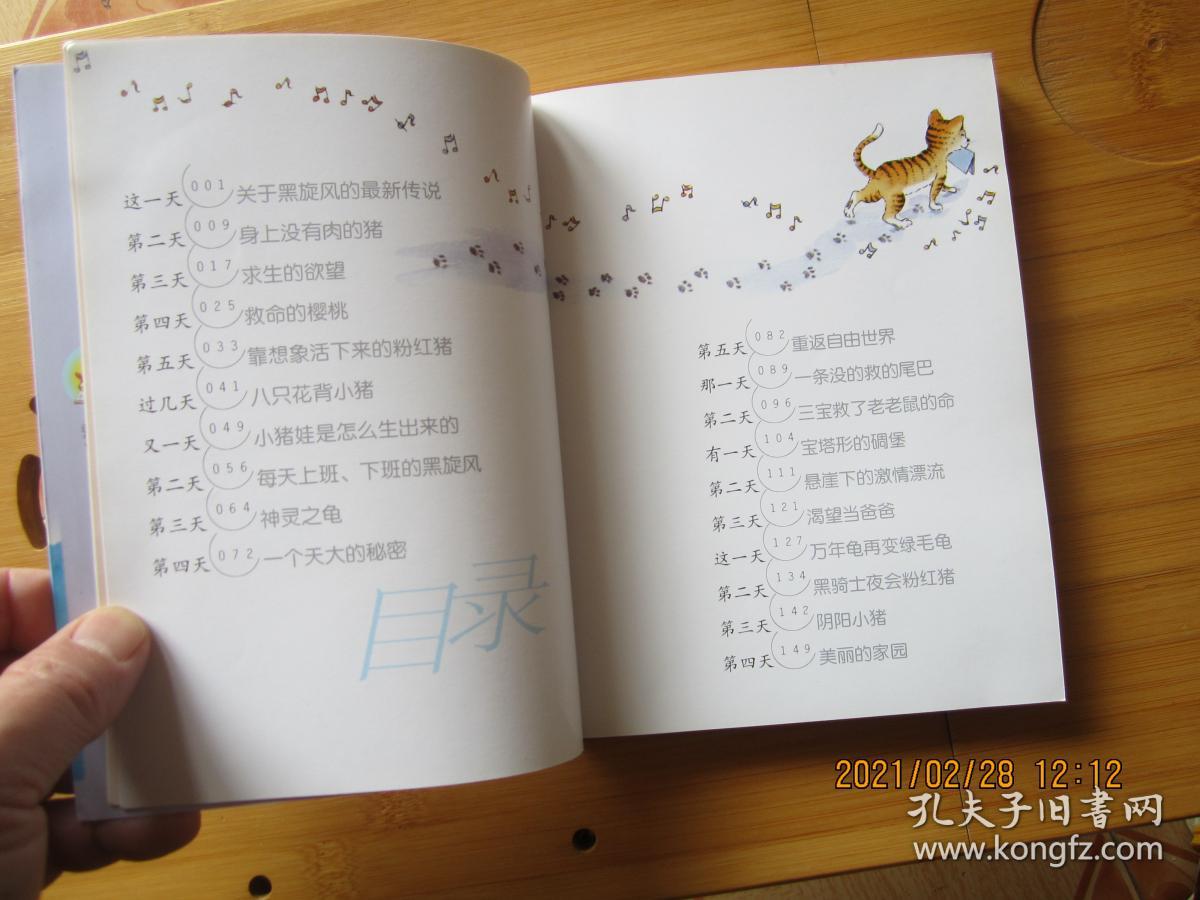 这一天 001 关于黑旋风的最新传说
第二天 009 身上没有肉的猪
第三天 017 求生的欲望
第四天 025 救命的樱桃
第五天 033 靠想象活下来的粉红猪
过几天 041 八只花背小猪
又一天 049 小猪娃是怎么生出来的
第二天 056 每天上班、下班的黑旋风
第三天 064 神灵之龟
第四天 072 一个天大的秘密
目录
第五天 082 重返自由世界
那一天 089 一条没的救的尾巴
第二天 096 三宝救了老老鼠的命
有一天 104 宝塔形的碉堡
第二天 111 悬崖下的激情漂流
第三天 121 渴望当爸爸
这一天 127 万年龟再变绿毛龟
第二天 134 黑骑士夜会粉红猪
第三天 142 阴阳小猪
第四天 149 美丽的家园
2021/02/28 12:12
孔夫子旧书网
www.kongfz.com